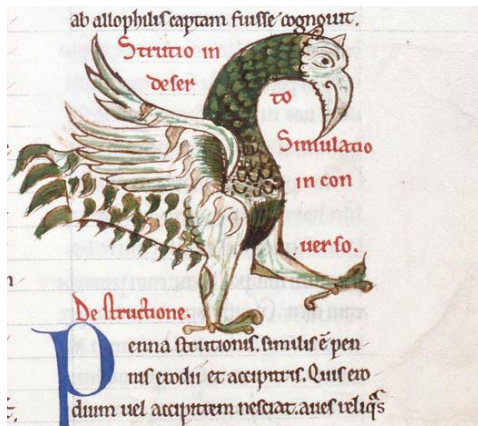 ab allophilis captam fuisse cognouit.
Strutio in
deser
to
Simulatio
in con
uerso.
De structione.
Penna strutionis. similis ē pen
nis erodii et accipitris. Quis ero
dium uel accipitrem nesciat. aues reliq̄s